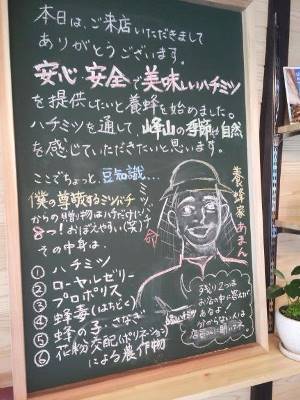 本日は、ご来店いただきまして
ありがとうございます。
安心安全で美味しいハチミツ
を提供したいと養蜂を始めました。
ハチミツを通して、峰山の季節や自然
を感じていただきたいと思います。
ここでちょっと、豆知識…
僕の尊敬するミツバチ
からの贈り物は
8つ！おぼえやすい(笑)
その中身は、
① ハチミツ
② ローヤルゼリー
③ プロポリス
④ 蜂毒(はちどく)
⑤ 蜂の子・さなぎ
⑥ 花粉交配(ポリネーション)
による農作物
ミツバチ命
養蜂家 あまん
残り2つは
お店の中に答えが
あるよ。
分からない人は
店員さんに聞いてネ